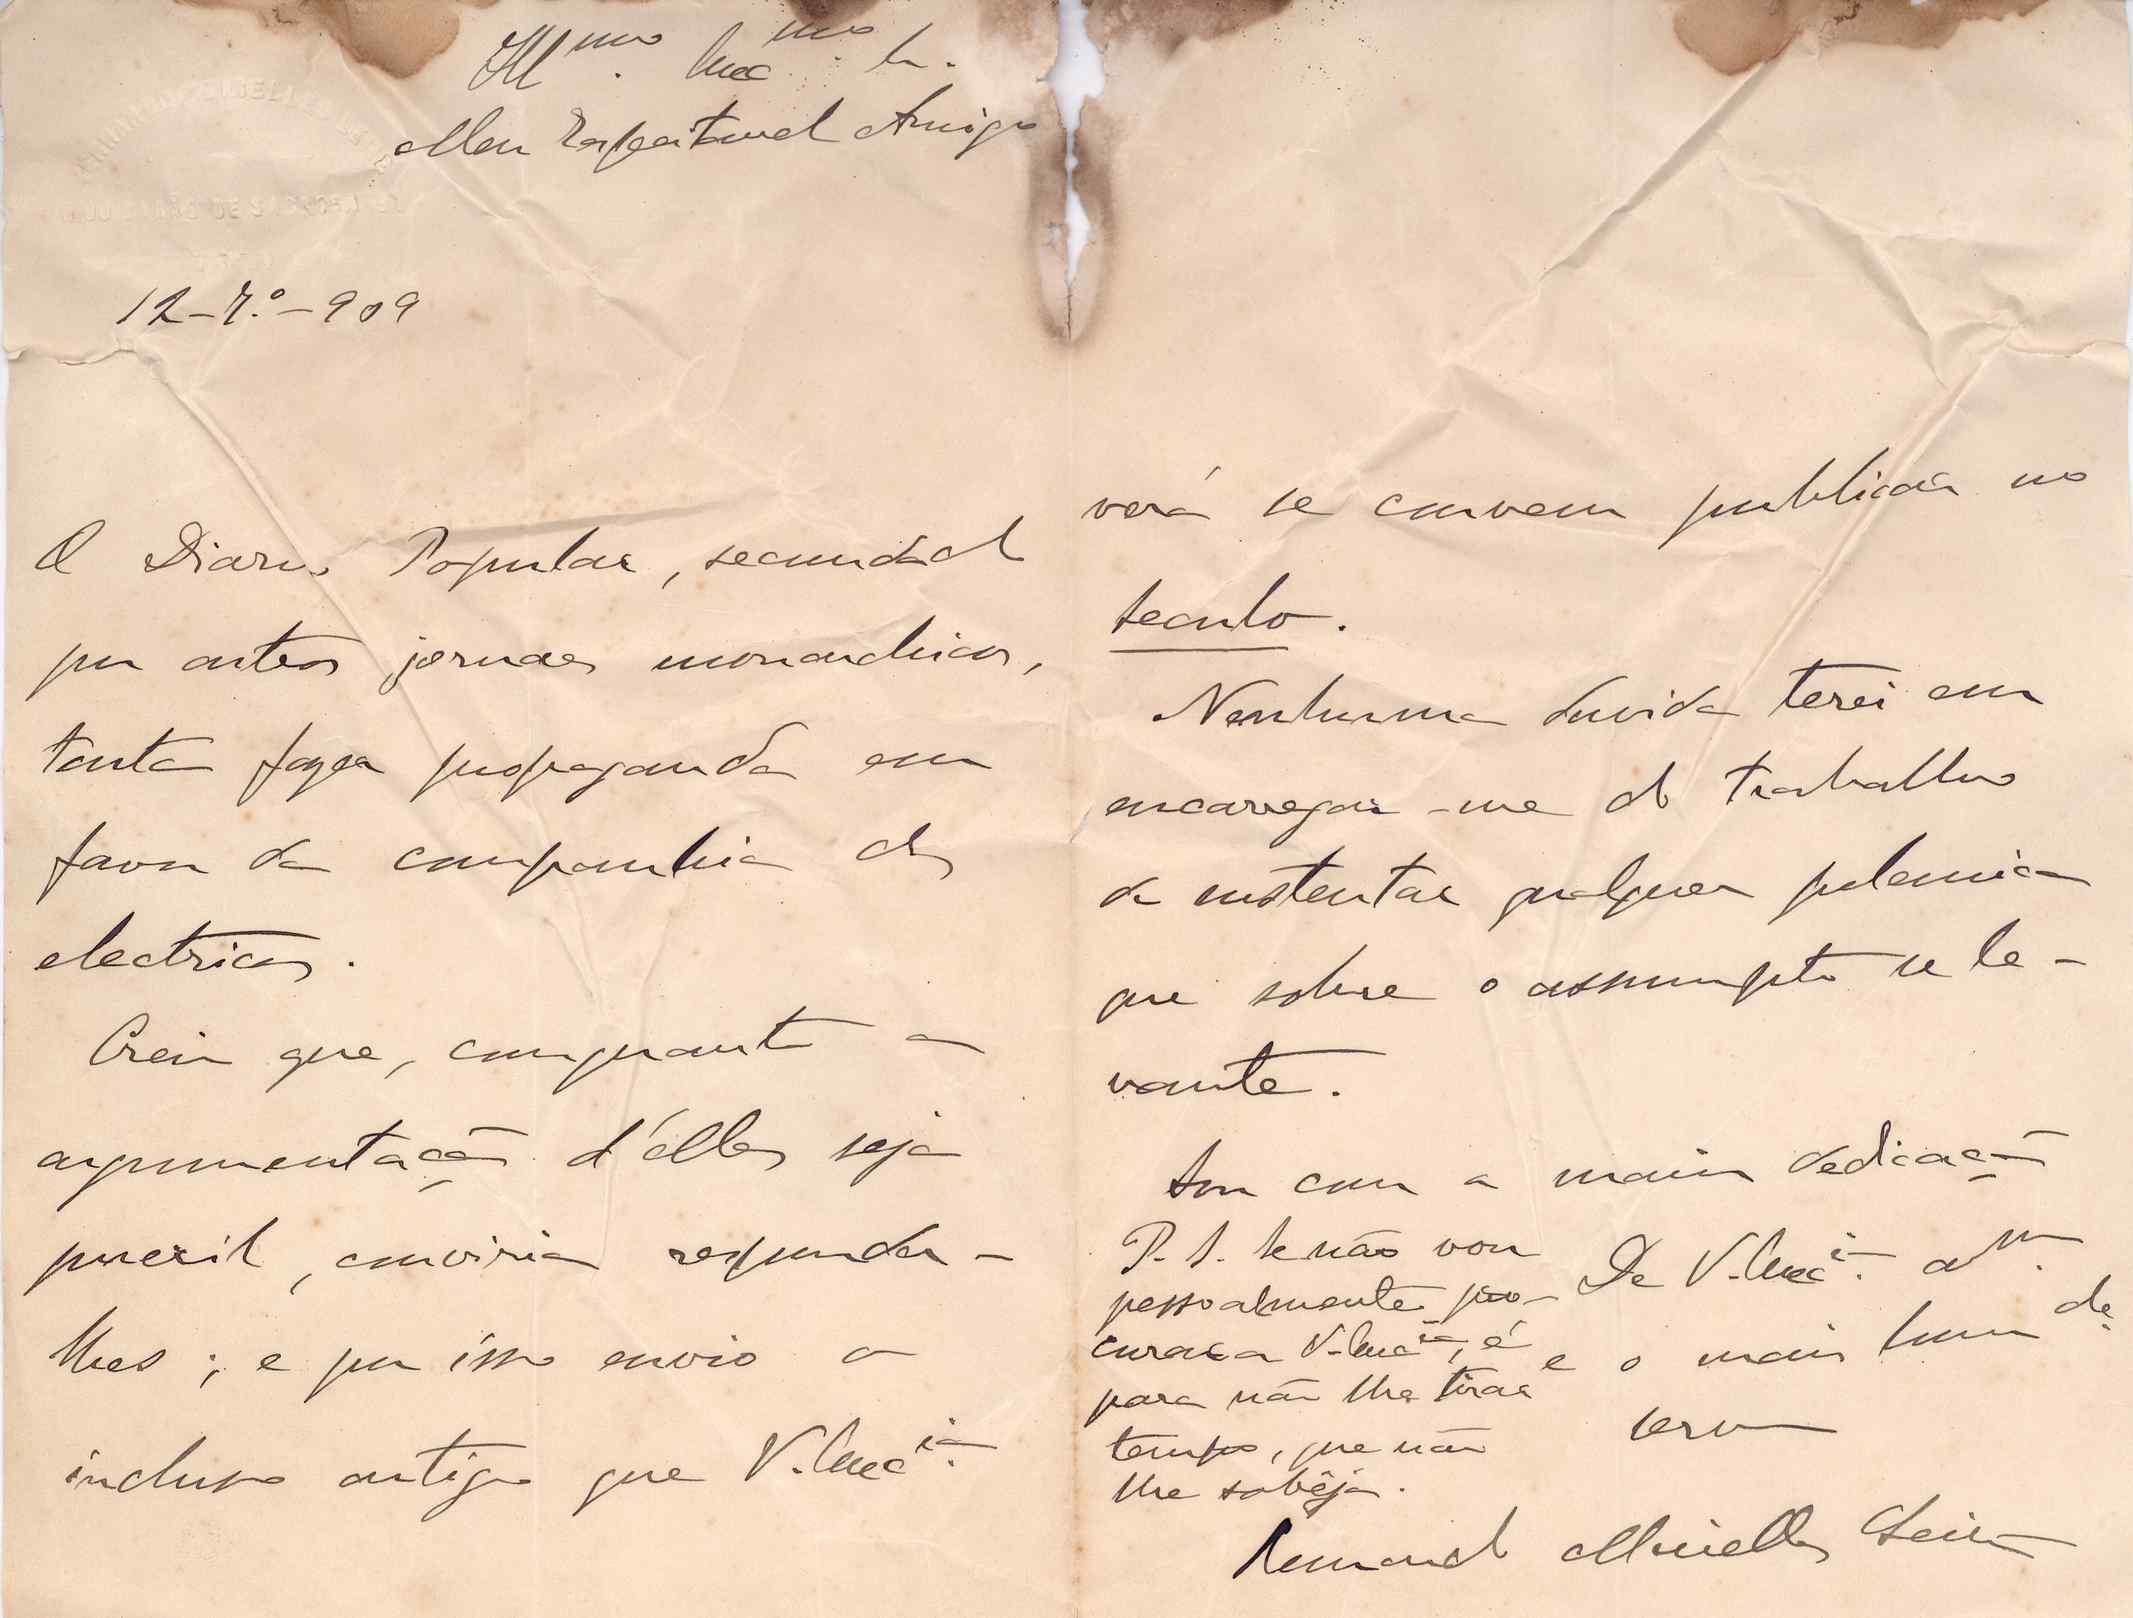 Ill.mo Exc.mo Sr.
Meu Respeitavel Amigo
12-7.º-909
O Diario Popular, secundado
por outros jornaes monarchicos,
tanta fazer propaganda em
favor da companhia dos
electricos.
Creio que, comquanto a
argumentação d'elles seja
pueril, conviria responder-
lhes; e por isso envio o
incluso artigo que V. Exc.ia
verá se convem publicar no
Seculo.
Nenhuma duvida terei em
encarregar-me do trabalho
de sustentar qualquer polemica
que sobre o assumpto se le-
vante.
Sou com a maior dedicação
De V. Exc.ia
e o mais humde.
servo
P. S. Se não vou
pessoalmente pro-
curar a V. Exc.ia, é
para não lhe tirar
tempo, que não
lhe sobêja.
Armando